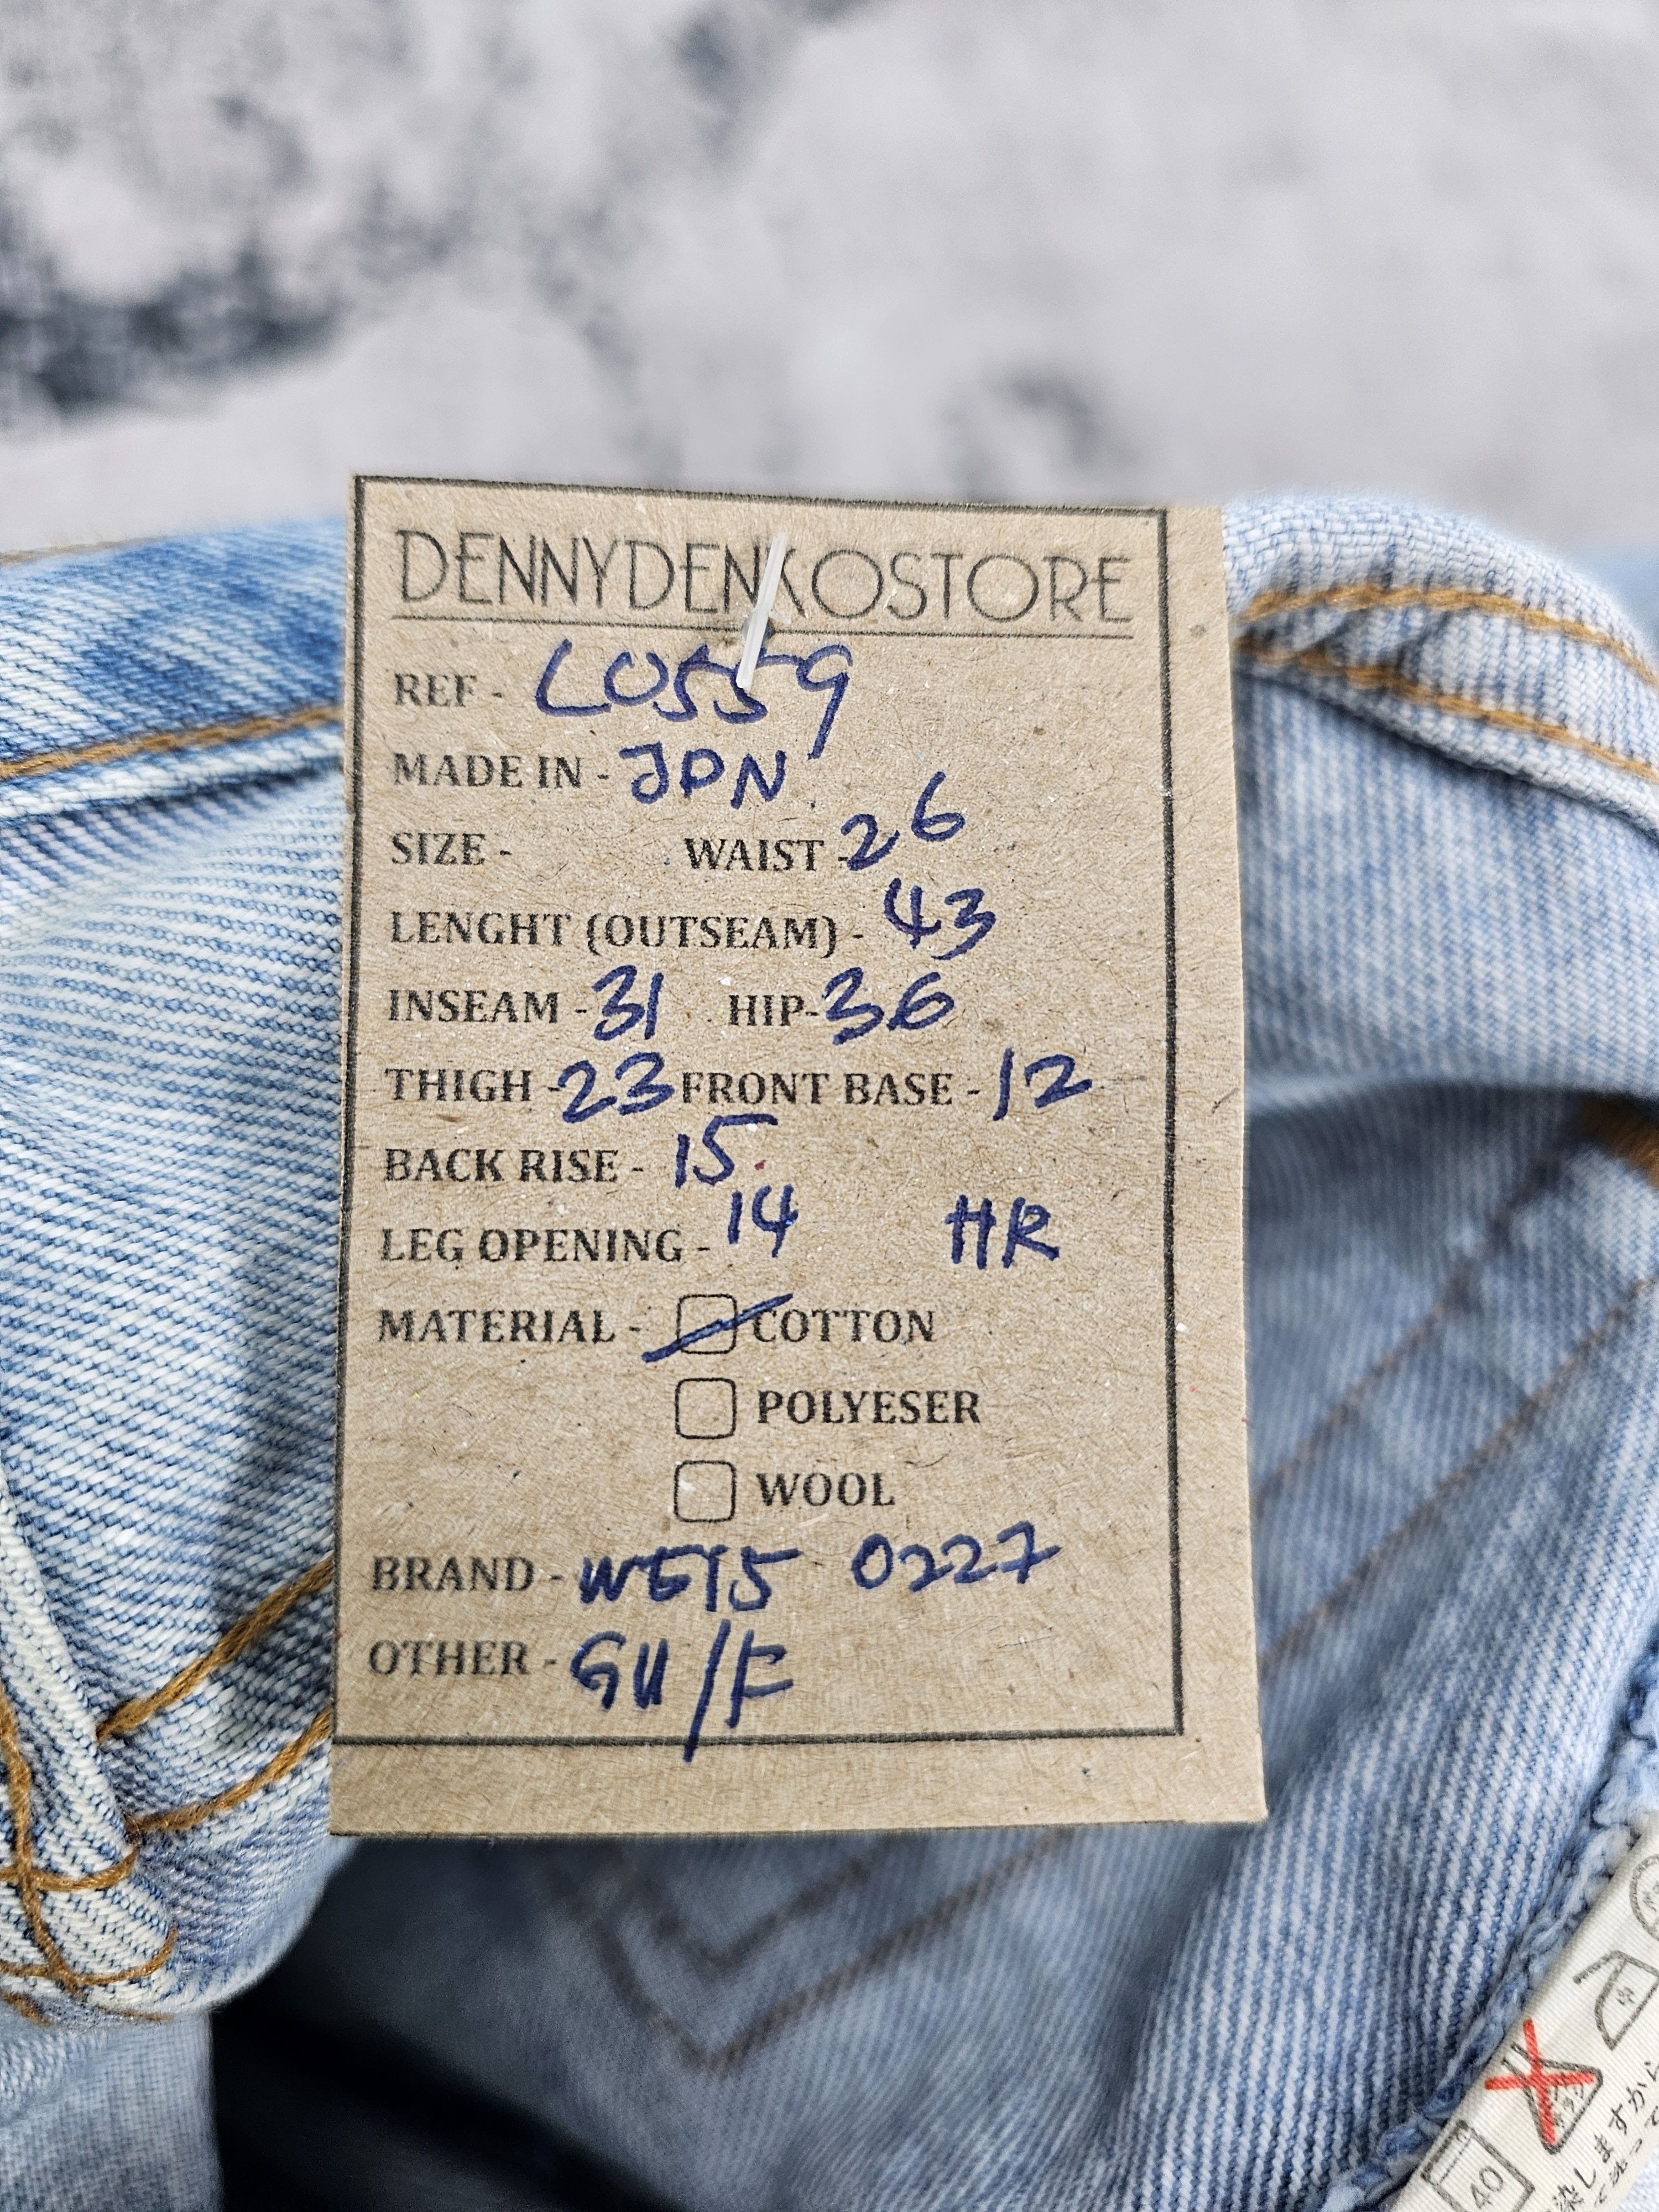 DENNYDENKOSTORE
REF - L0559
MADE IN - JPN
SIZE - WAIST - 26
LENGHT (OUTSEAM) - 43
INSEAM - 31 HIP - 36
THIGH - 23 FRONT BASE - 12
BACK RISE - 15
LEG OPENING - 14 HR
MATERIAL - COTTON
POLYESER
WOOL
BRAND - 0227
OTHER -
40